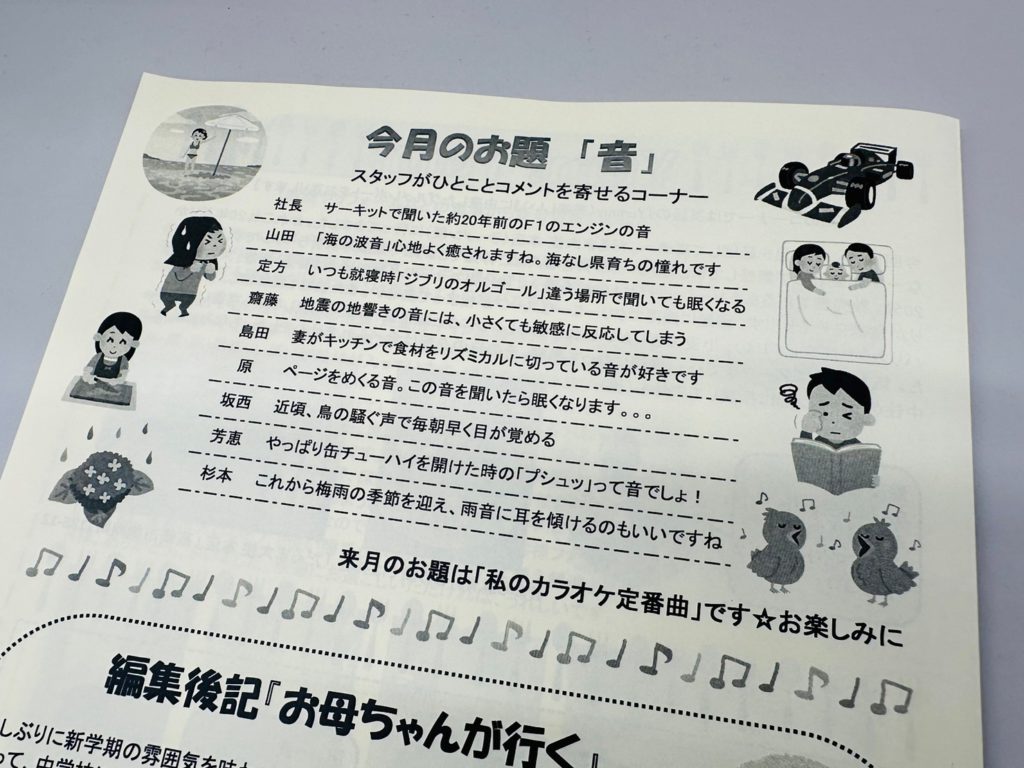 今月のお題 「音」
スタッフがひとことコメントを寄せるコーナー
社長 サーキットで聞いた約20年前のF1のエンジンの音
山田 「海の波音」心地よく癒されますね。海なし県育ちの憧れです
定方 いつも就寝時「ジブリのオルゴール」違う場所で聞いても眠くなる
齋藤 地震の地響きの音には、小さくても敏感に反応してしまう
島田 妻がキッチンで食材をリズミカルに切っている音が好きです
原 ページをめくる音。この音を聞いたら眠くなります。。。
坂西 近頃、鳥の騒ぐ声で毎朝早く目が覚める
芳恵 やっぱり缶チューハイを開けた時の「プシュッ」って音でしょ！
杉本 これから梅雨の季節を迎え、雨音に耳を傾けるのもいいですね
来月のお題は「私のカラオケ定番曲」です☆お楽しみに
編集後記『お母ちゃんが行く』
しぶりに新学期の雰囲気を